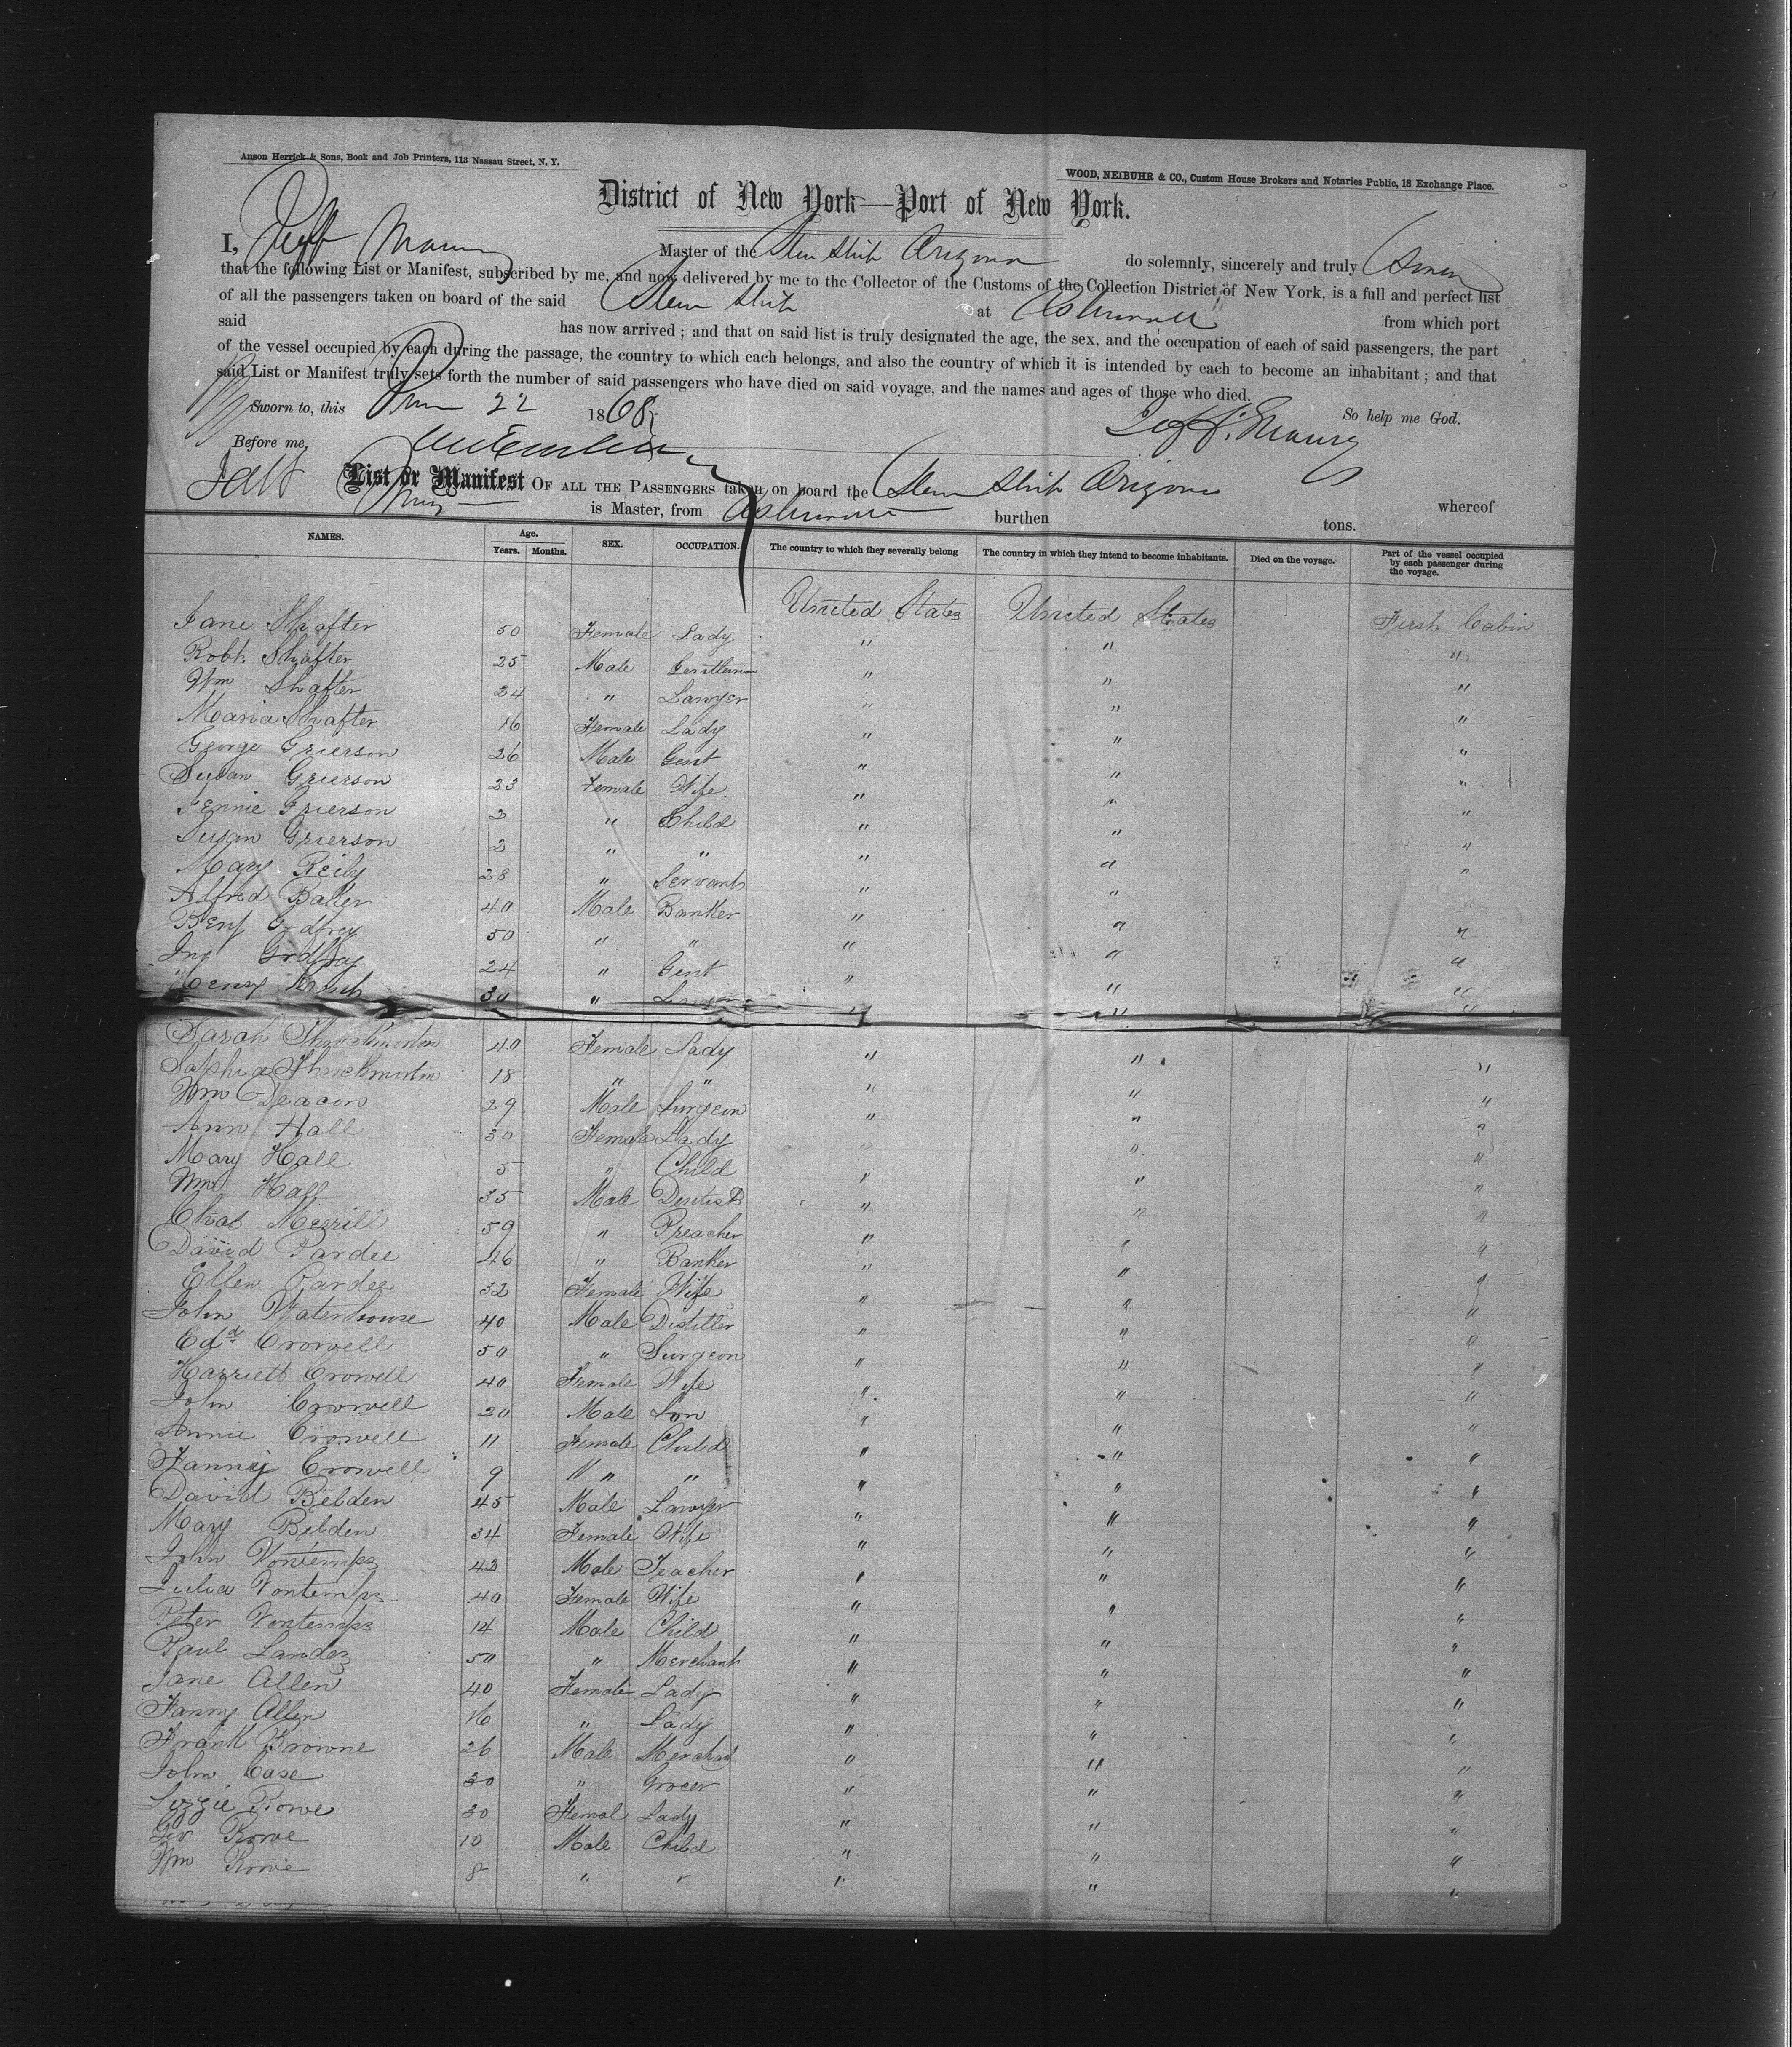 Anson Herrick & Sons, Book and Job Printers, 113 Nassau Street, N. Y.
WOOD, NEIBUHR & CO., Custom House Brokers and Notaries Public, 18 Exchange Place.
District of New York—Port of New York.
I, Jeff Maury Master of the Stem Ship Arizona do solemnly, sincerely and truly Swear
that the following List or Manifest, subscribed by me, and now delivered by me to the Collector of the Customs of the Collection District of New York, is a full and perfect list
of all the passengers taken on board of the said Stem Ship at Aspinwall from which port
said has now arrived ; and that on said list is truly designated the age, the sex, and the occupation of each of said passengers, the part
of the vessel occupied by each during the passage, the country to which each belongs, and also the country of which it is intended by each to become an inhabitant ; and that
said List or Manifest truly sets forth the number of said passengers who have died on said voyage, and the names and ages of those who died.
Sworn to, this 22 1868 So help me God.
Jeff. Maury
Before me,
List or Manifest OF ALL THE PASSENGERS taken on board the Stem Ship Arizona whereof
Jeff Maury is Master, from Aspinwall burthen tons.
NAMES. Age. Years. Months. SEX. OCCUPATION. The country to which they severally belong The country in which they intend to become inhabitants. Died on the voyage. Part of the vessel occupied by each passenger during the voyage.
Jane Shafter 50 Female Lady United States United States First Cabin
Robt. Shafter 25 Male Gentleman " " "
Wm Shafter 24 " Lawyer " " "
Maria Shafter 16 Female Lady " " "
George Grierson 26 Male Gent " " "
Susan Grierson 23 Female Wife " " "
Jennie Grierson 2 " Child " " "
Susan Grierson 2 " " " " "
Mary Reily 28 " Servant " " "
Alfred Baker 40 Male Banker " " "
Benj Godfrey 50 " " " " "
Jno Godfrey 24 " Gent " " "
Henry 30 " Lawyer " " "
Sarah Throckmorton 40 Female Lady " " "
Sophia Throckmorton 18 " " " " "
Wm Deacon 29 Male Surgeon " " "
Ann Hall 30 Female Lady " " "
Mary Hall 5 " Child " " "
Wm Hall 35 Male Dentist " " "
Chas Merrill 59 " Preacher " " "
David Pardee 46 " Banker " " "
Ellen Pardee 32 Female Wife " " "
John Waterhouse 40 Male Distiller " " "
Edd Crowell 50 " Surgeon " " "
Harriett Crowell 40 Female Wife " " "
John Crowell 20 Male Son " " "
Annie Crowell 11 Female Child " " "
Fanny Crowell 9 " " " " "
David Belden 45 Male Lawyer " " "
Mary Belden 34 Female Wife " " "
John Vontemps 43 Male Teacher " " "
Julia Vontemps 40 Female Wife " " "
Peter Vontemps 14 Male Child " " "
Paul Landez 50 " Merchant " " "
Jane Allen 40 Female Lady " " "
Fanny Allen 16 " Lady " " "
Frank Browne 26 Male Merchant " " "
John Case 30 " Grocer " " "
Lizzie Rowe 30 Femal Lady " " "
Geo Rowe 10 Male Child " " "
Wm Rowe 8 " " " " "